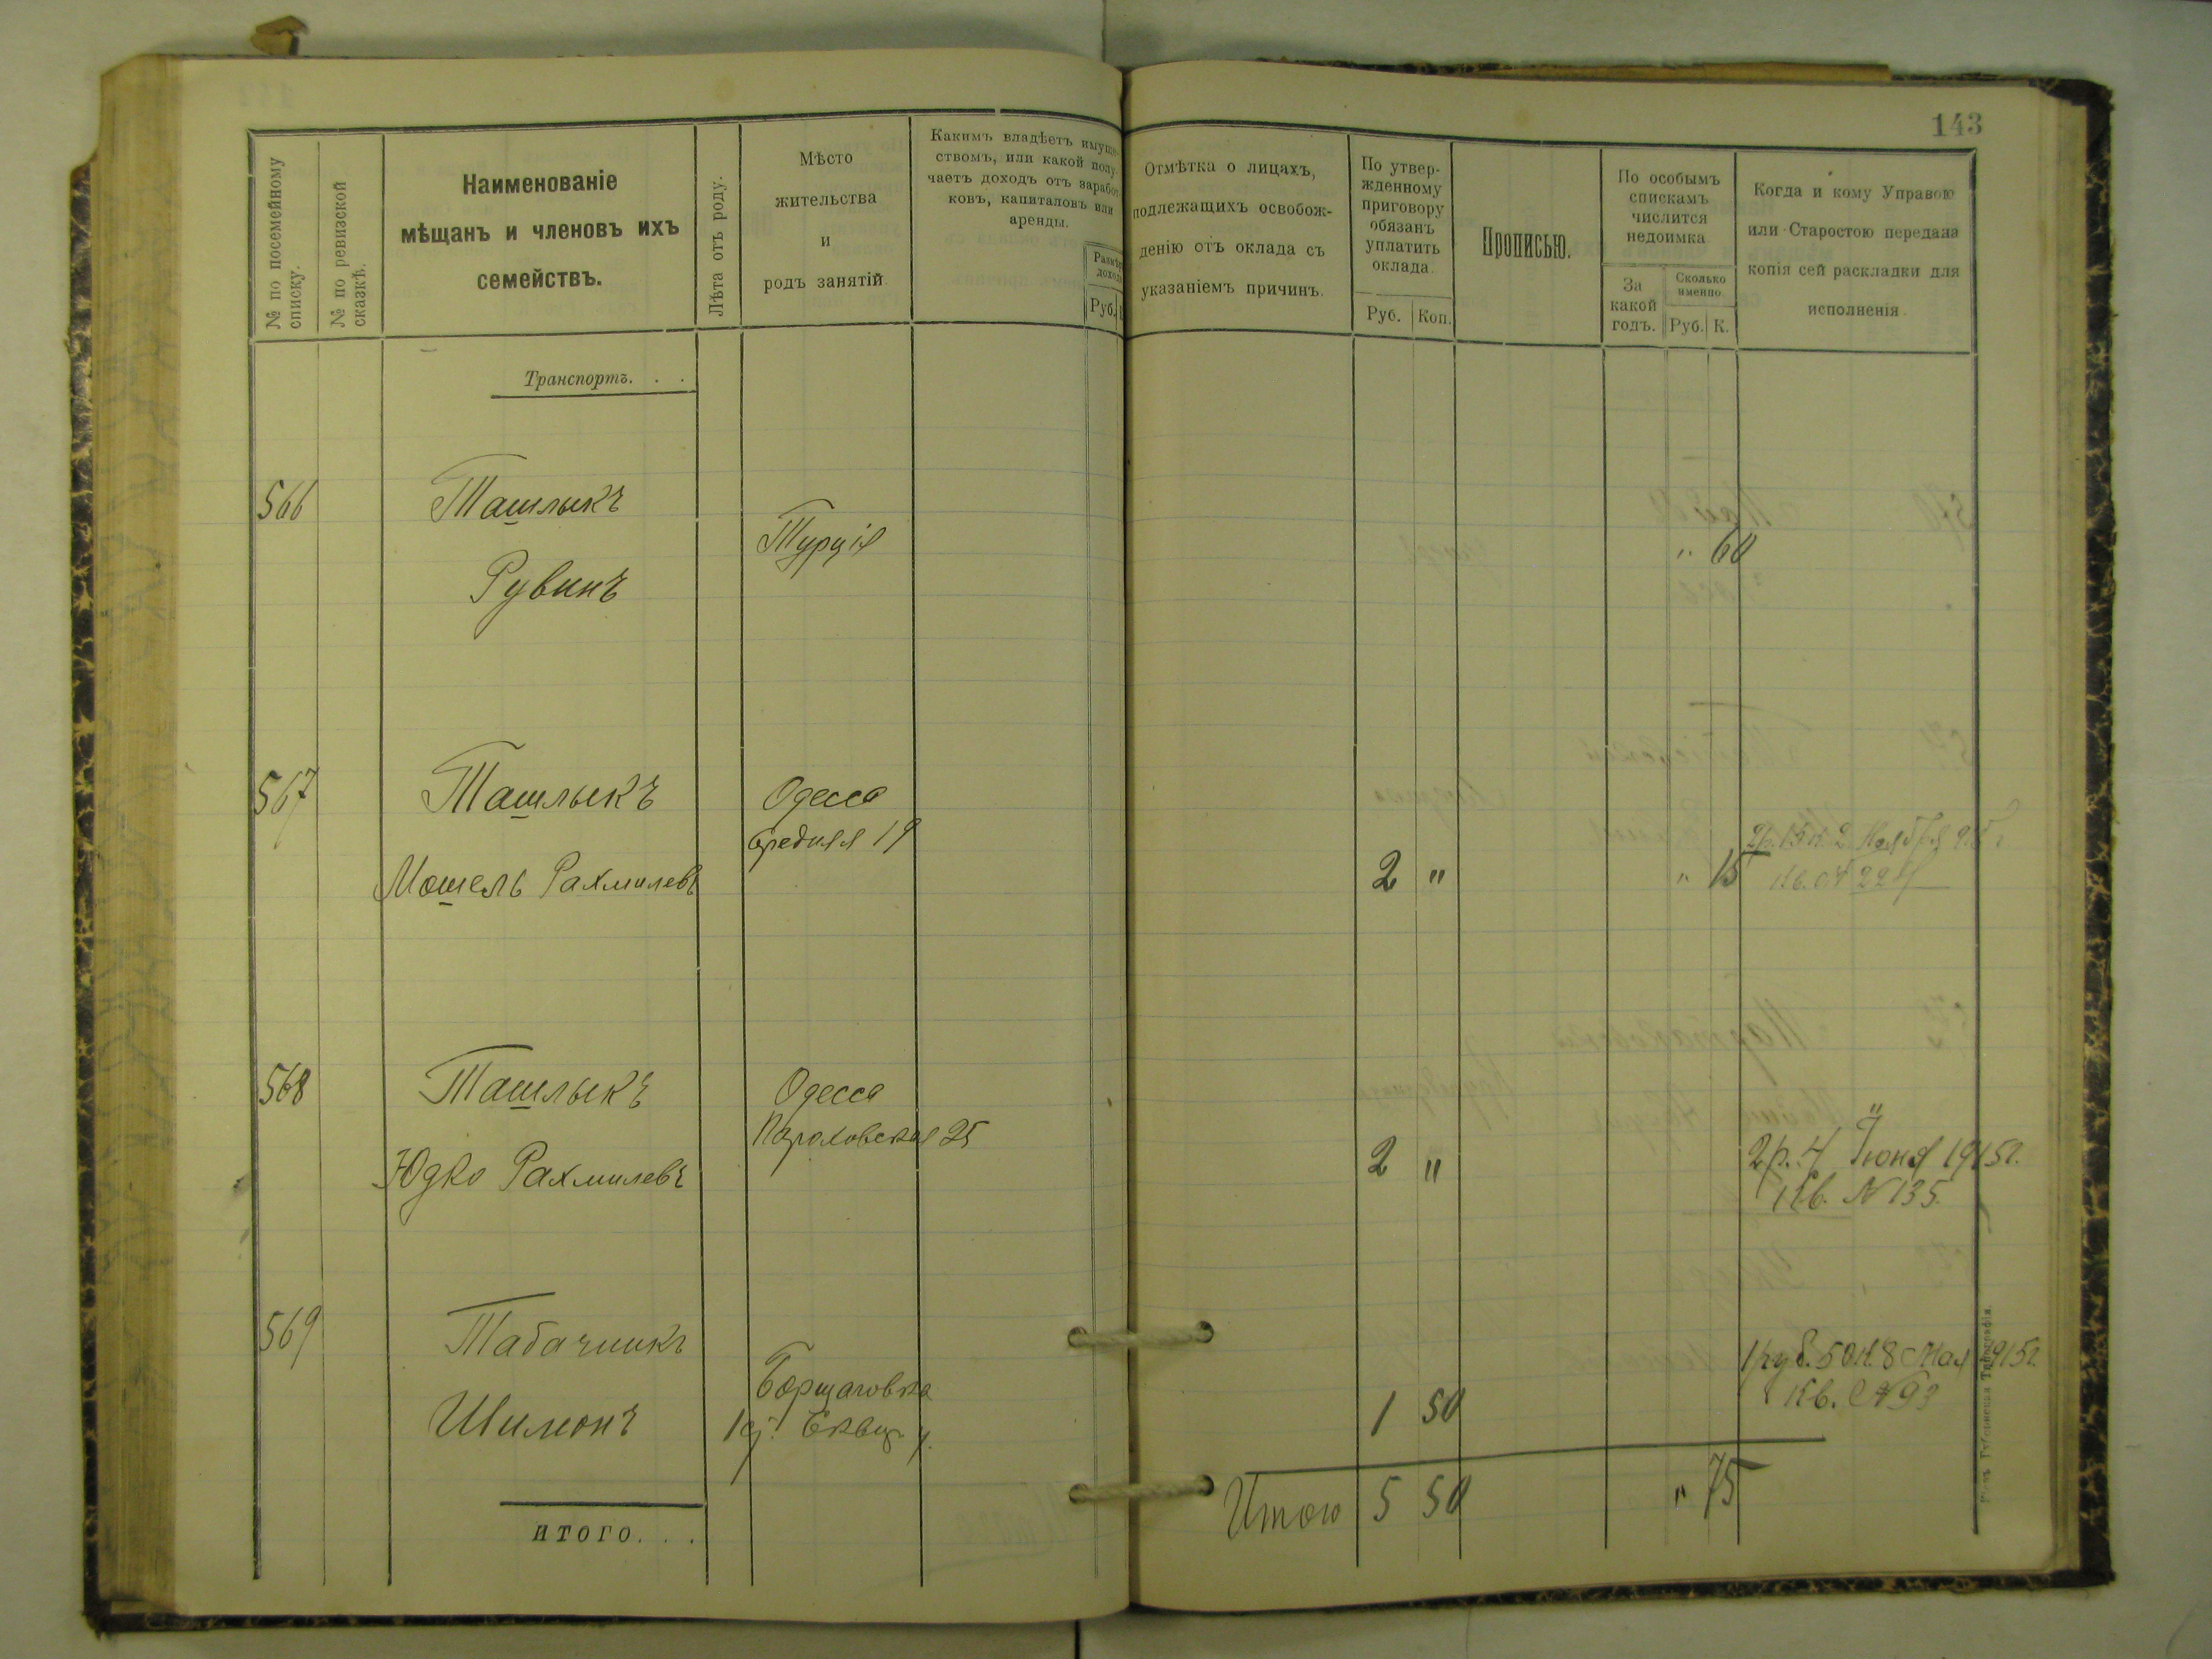 143
№ по посемейному списку.
№ по ревизской сказкѣ.
Наименованіе
мѣщанъ и членовъ ихъ
семействъ.
Лѣта отъ роду.
Мѣсто
жительства
и
родъ занятій.
Какимъ владѣетъ имуще-
ствомъ, или какой полу-
чаетъ доходъ отъ заработ-
ковъ, капиталовъ или
аренды.
Размѣр
дохода
Руб.
Отмѣтка о лицахъ,
подлежащихъ освобож-
денію отъ оклада съ
указаніемъ причинъ.
По утвер-
жденному
приговору
обязанъ
уплатить
оклада.
Руб. Коп.
Прописью.
По особымъ
спискамъ
числится
недоимка
За
какой
годъ.
Сколько
именно.
Руб. К.
Когда и кому Управою
или Старостою передана
копія сей раскладки для
исполненія.
Транспортъ. . .
566 Ташлыкъ
Турція " 60
Рувинъ
567 Ташлыкъ Одесса
Средняя 19
2р. 15к. 2 Ноября 915 г
Мошель Рахмилевъ 2 " " 15 Кв. №
568 Ташлыкъ Одесса
25
Юдко Рахмилевъ 2 " 2р. 4 Іюня 1915г.
Кв. № 135.
569 Табачникъ
1 руб. 50к. 8 Мая 1915г.
Борщаговка
Кв. № 93
Шимонъ 1 50
Итого 5 50 " 75
ИТОГО. . .
Губернская Типографія.